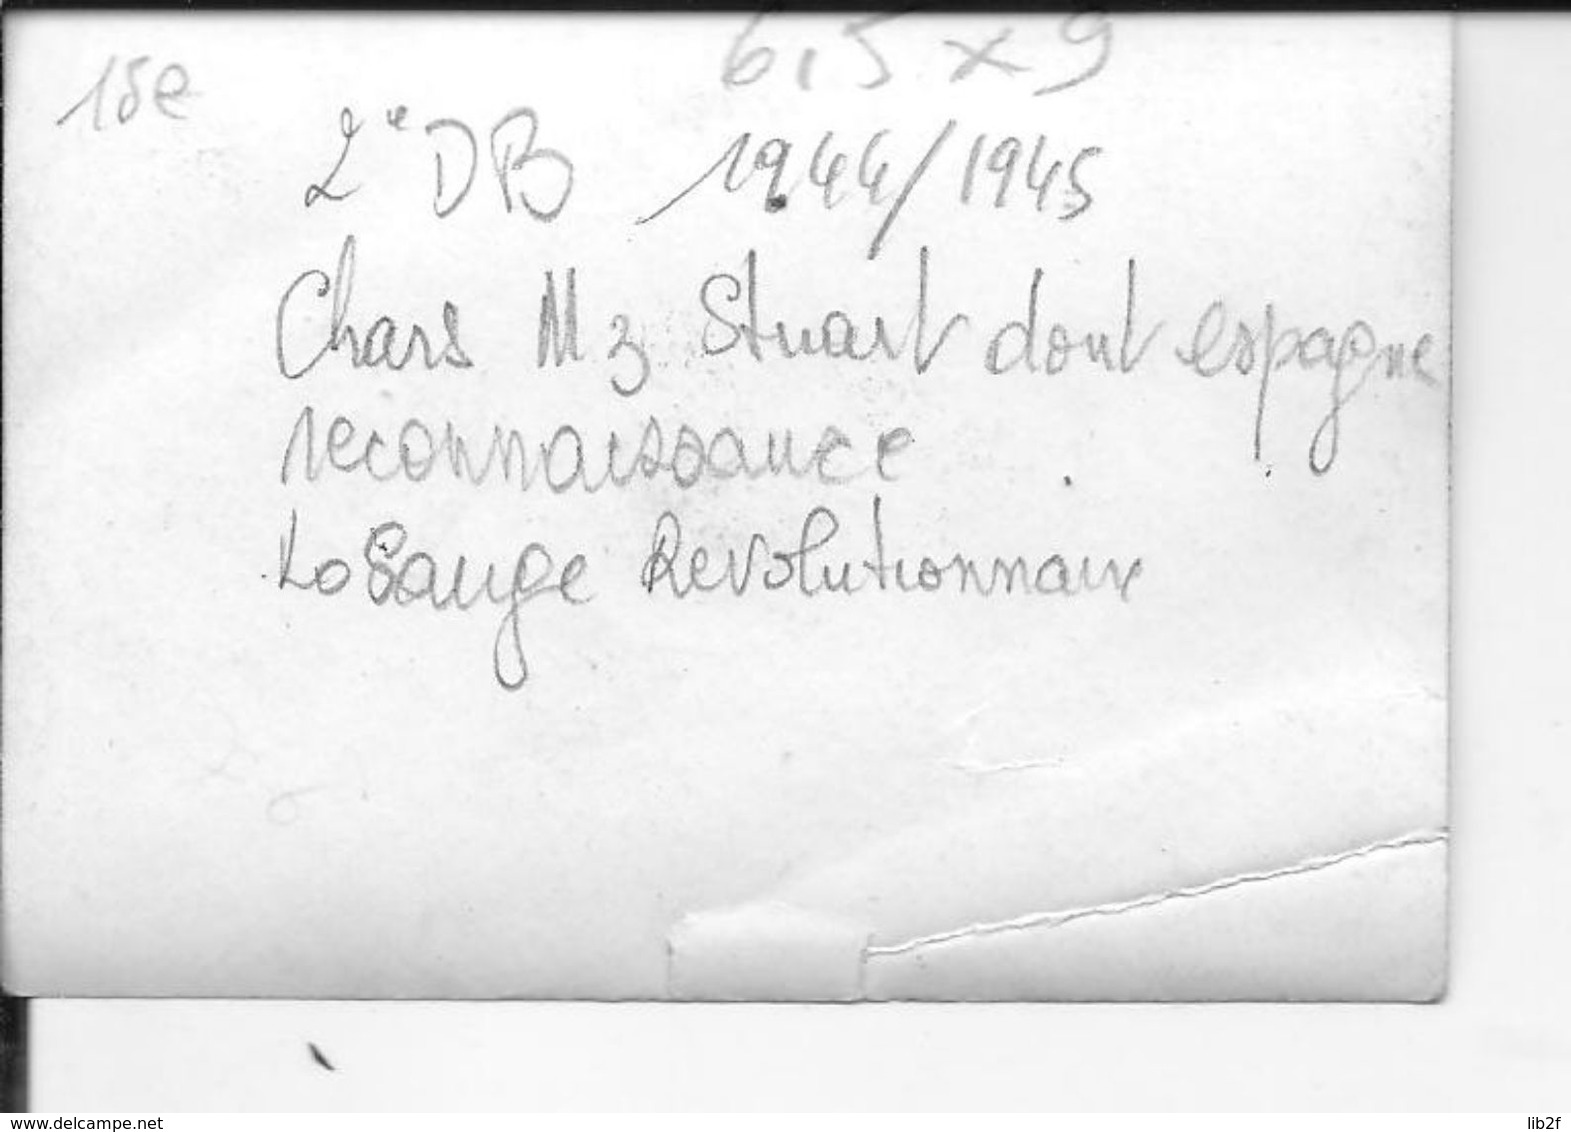 6,5 x 9
15e
2e DB 1944/1945
Chars M3 Stuart dont espagne
reconnaissance
Losange Revolutionnaire
www.delcampe.net
lib2f